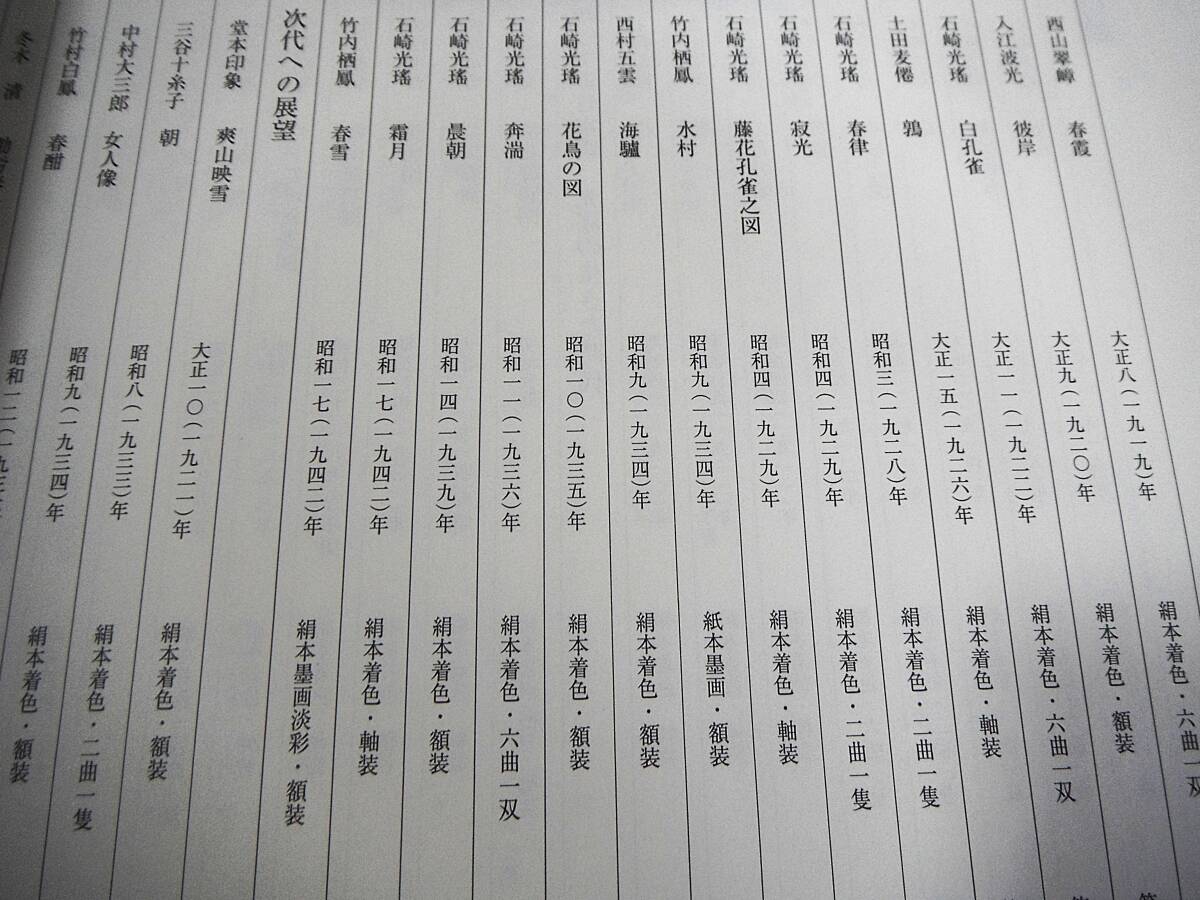 西山翠嶂 春霞 大正八(一九一九)年 絹本着色・六曲一双
入江波光 彼岸 大正九(一九二〇)年 絹本着色・額装
石崎光瑤 白孔雀 大正一一(一九二二)年 絹本着色・六曲一双
土田麦僊 鶉 大正一五(一九二六)年 絹本着色・軸装
石崎光瑤 春律 昭和三(一九二八)年 絹本着色・二曲一隻
石崎光瑤 寂光 昭和四(一九二九)年 絹本着色・二曲一隻
石崎光瑤 藤花孔雀之図 昭和四(一九二九)年 絹本着色・軸装
竹内栖鳳 水村 昭和九(一九三四)年 紙本墨画・額装
西村五雲 海驢 昭和九(一九三四)年 絹本着色・額装
石崎光瑤 花鳥の図 昭和一〇(一九三五)年 絹本着色・額装
石崎光瑤 奔湍 昭和一一(一九三六)年 絹本着色・六曲一双
石崎光瑤 晨朝 昭和一四(一九三九)年 絹本着色・額装
石崎光瑤 霜月 昭和一七(一九四二)年 絹本着色・軸装
竹内栖鳳 春雪 昭和一七(一九四二)年 絹本墨画淡彩・額装
次代への展望
堂本印象 爽山映雪 大正一〇(一九二一)年 絹本着色・額装
三谷十糸子 朝 昭和八(一九三三)年 絹本着色・二曲一隻
中村大三郎 女人像 昭和九(一九三四)年 絹本着色・額装
竹村白鳳 春酣 昭和一二(一九三
冬木 清